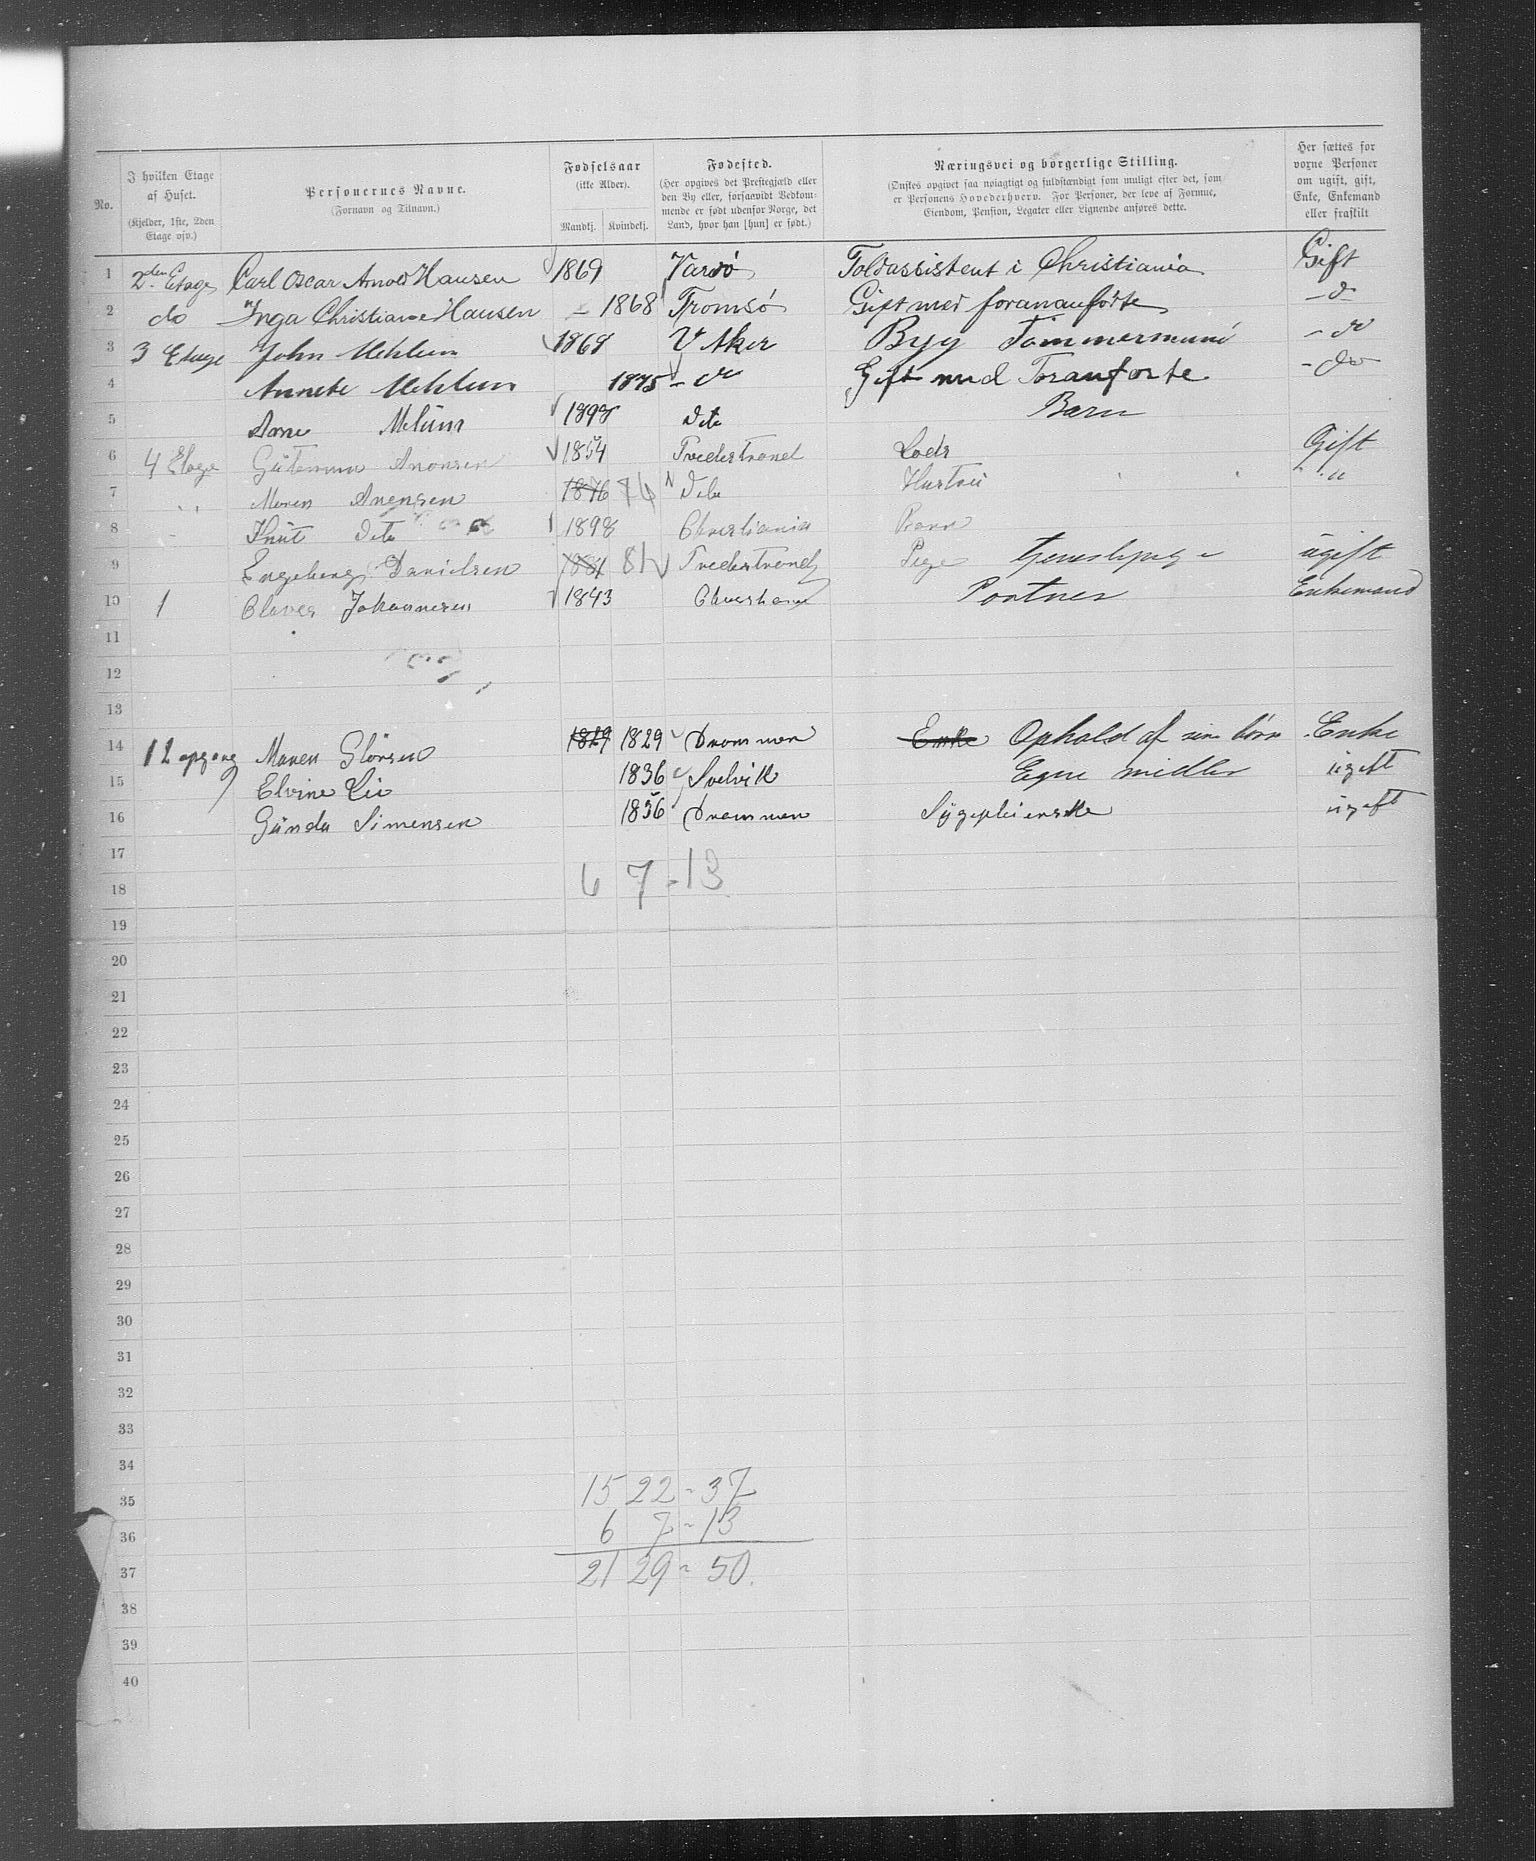 No.
I hvilken Etage af Huset. (Kjelder, 1ste, 2den Etage osv.)
Personernes Navne. (Fornavn og Tilnavn.)
Fødselsaar (ikke Alder). Mandkj. Kvindekj.
Fødested. (Her opgives det Prestegjæld eller den By eller, forsaavidt Vedkommende er født udenfor Norge, det Land, hvor han [hun] er født.)
Næringsvei og borgerlige Stilling. (Ønskes opgivet saa nøiagtigt og fuldstændigt som muligt efter det, som er Personens Hovederhverv. For Personer, der leve af Formue, Eiendom, Pension, Legater eller Lignende anføres dette.
Her sættes for vorne Personer om ugift, gift, Enke, Enkemand eller fraskilt
1 2den Etage Carl Oscar Arnold Hansen 1869 Vardö Toldassistent i Christiania Gift
2 do Inga Christiane Hansen 1868 Tromsö Gift med forananførte - d
3 3 Etage John Mehlum 1868 V Aker Byg Tømmermand - do
4 Annete Mehlum 1875 - do Gift med Foranførte - do
5 Arne Melum 1898 Dito Barn
6 4 Etage Anonsen 1854 Tvedestrand Lods Gift
7 Maren Anensen 1876 76 Dito Hustru
8 Knut Dito 1898 Christiania Barn
9 Engeborg Danielsen 1881 81 Tvedestrand Pige ugift
10 1 Olaves Johannesen 1843 Christiania Portner Enkemand
11
12
13
14 1 2 opgang Maren Glørsen 1829 1829 Drammen Enke Ophold af sine børn Enke
15 Elvine Lie 1836 Svelvik Egne midler ugift
16 Gunda Simensen 1856 Drammen Sygepleierske ugift
17
18 6 7 - 13
19
20
21
22
23
24
25
26
27
28
29
30
31
32
33
34
35 15 22 - 37
36 6 7 - 13
37 21 29 - 50.
38
39
40